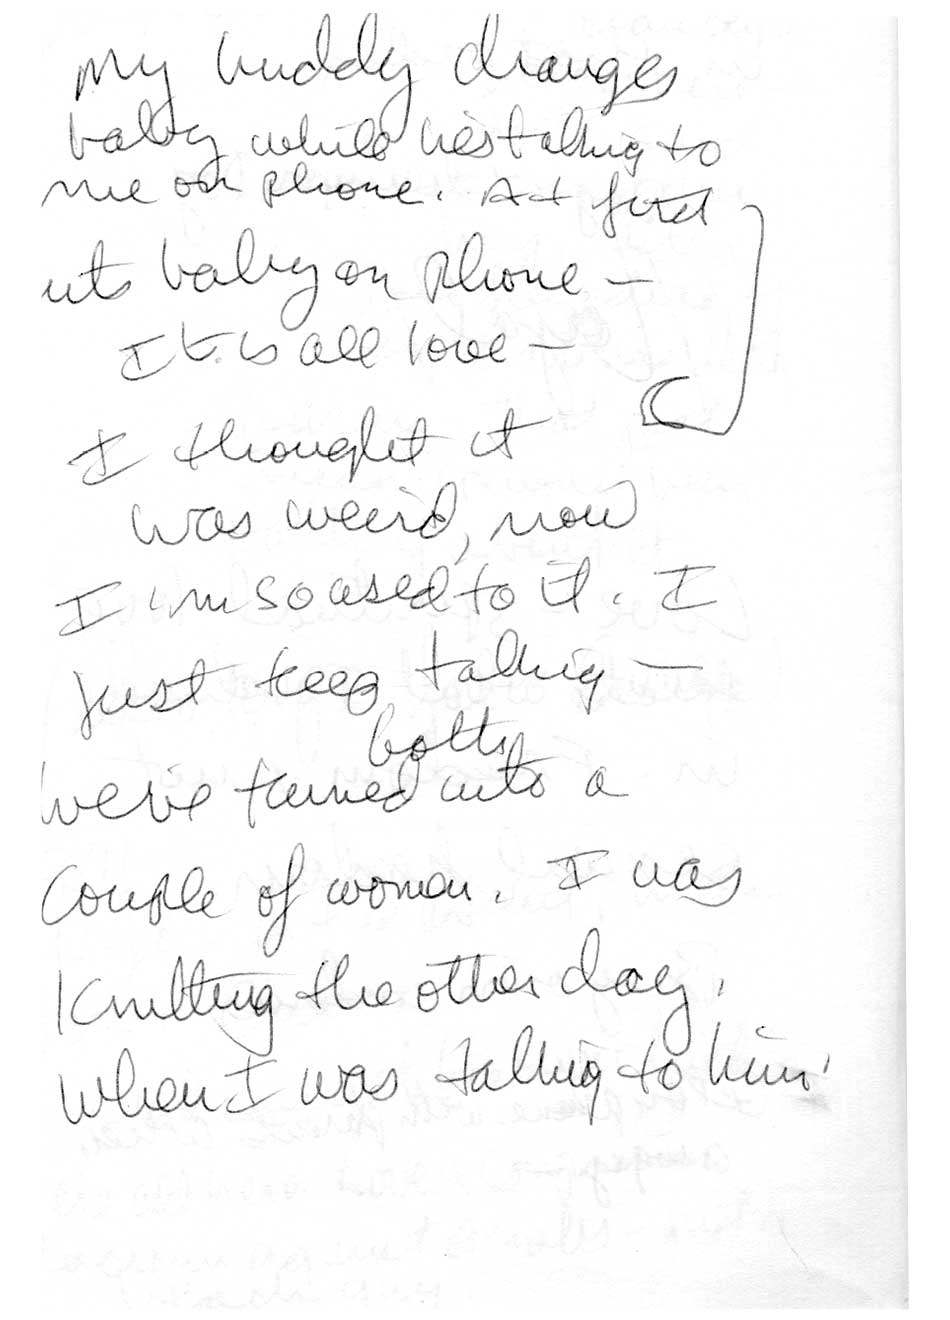 my buddy changes
baby while he's talking to
me on phone. At first
its baby on phone –
It is all love –
I thought it
was weird, now
I am so used to it. I
just keep talking –
both
we've turned into a
couple of women. I was
Knitting the other day.
When I was talking to him